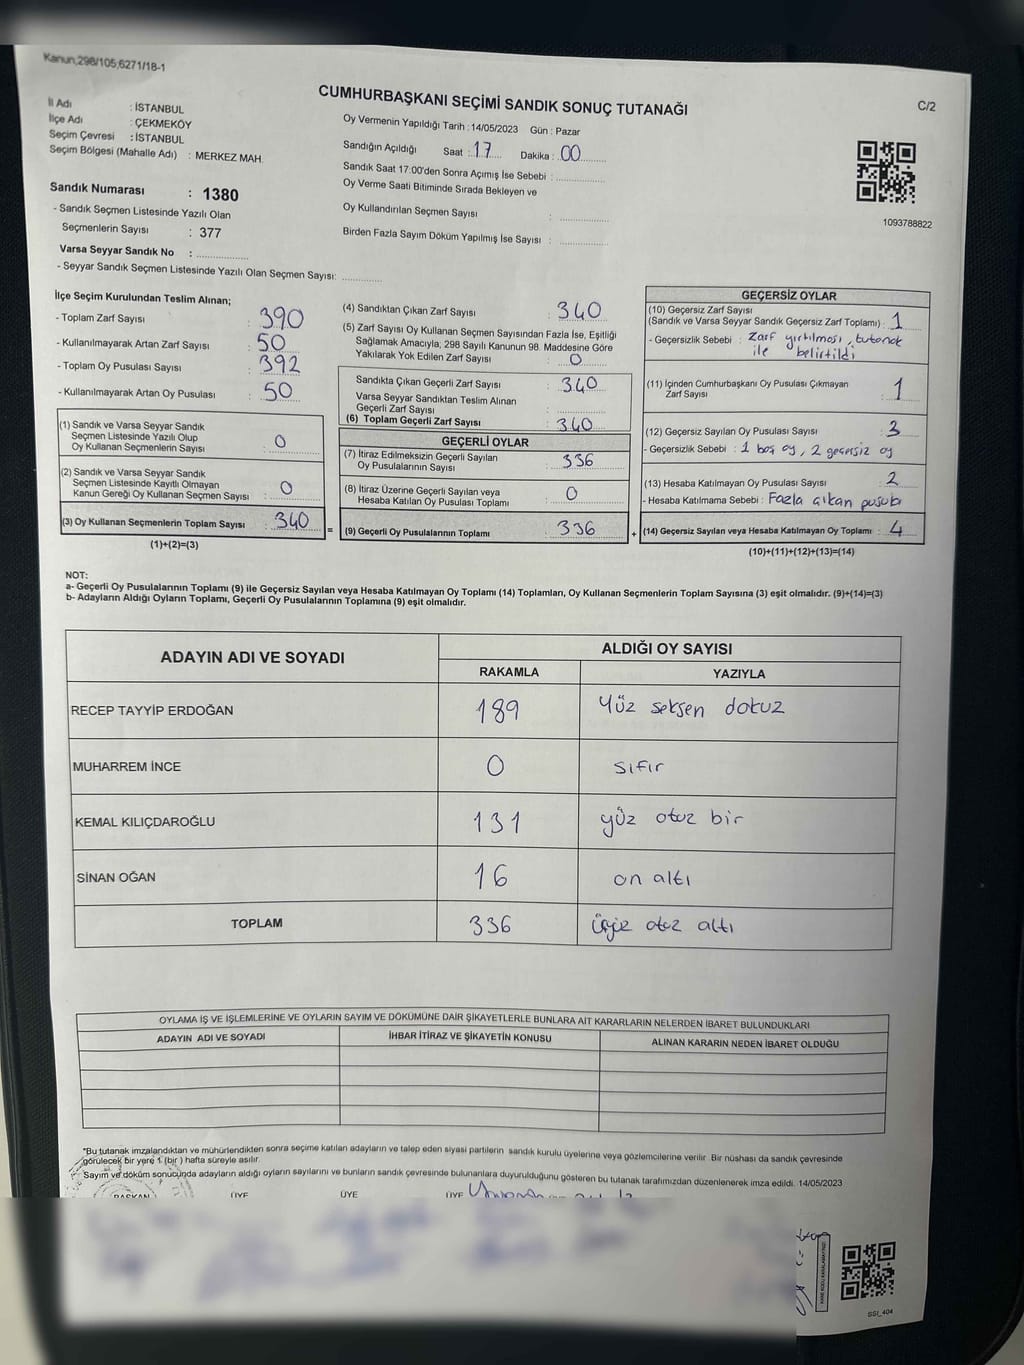 Kanun,298/105,6271/18-1
CUMHURBAŞKANI SEÇİMİ SANDIK SONUÇ TUTANAĞI
C/2
İl Adı : İSTANBUL
İlçe Adı : ÇEKMEKÖY
Seçim Çevresi : İSTANBUL
Seçim Bölgesi (Mahalle Adı) : MERKEZ MAH.
Sandık Numarası : 1380
- Sandık Seçmen Listesinde Yazılı Olan
Seçmenlerin Sayısı : 377
Varsa Seyyar Sandık No :
- Seyyar Sandık Seçmen Listesinde Yazılı Olan Seçmen Sayısı:
Oy Vermenin Yapıldığı Tarih : 14/05/2023 Gün : Pazar
Sandığın Açıldığı Saat : 17 Dakika : 00
Sandık Saat 17:00'den Sonra Açımış İse Sebebi :
Oy Verme Saati Bitiminde Sırada Bekleyen ve
Oy Kullandırılan Seçmen Sayısı :
Birden Fazla Sayım Döküm Yapılmış İse Sayısı :
1093788822
İlçe Seçim Kurulundan Teslim Alınan;
- Toplam Zarf Sayısı : 390
- Kullanılmayarak Artan Zarf Sayısı : 50
- Toplam Oy Pusulası Sayısı : 392
- Kullanılmayarak Artan Oy Pusulası : 50
(1) Sandık ve Varsa Seyyar Sandık
Seçmen Listesinde Yazılı Olup
Oy Kullanan Seçmenlerin Sayısı : 0
(2) Sandık ve Varsa Seyyar Sandık
Seçmen Listesinde Kayıtlı Olmayan
Kanun Gereği Oy Kullanan Seçmen Sayısı : 0
(3) Oy Kullanan Seçmenlerin Toplam Sayısı : 340
(1)+(2)=(3)
=
(4) Sandıktan Çıkan Zarf Sayısı : 340
(5) Zarf Sayısı Oy Kullanan Seçmen Sayısından Fazla İse, Eşitliği
Sağlamak Amacıyla; 298 Sayılı Kanunun 98. Maddesine Göre
Yakılarak Yok Edilen Zarf Sayısı : 0
Sandıkta Çıkan Geçerli Zarf Sayısı : 340
Varsa Seyyar Sandıktan Teslim Alınan
Geçerli Zarf Sayısı :
(6) Toplam Geçerli Zarf Sayısı : 340
GEÇERLİ OYLAR
(7) İtiraz Edilmeksizin Geçerli Sayılan
Oy Pusulalarının Sayısı : 336
(8) İtiraz Üzerine Geçerli Sayılan veya
Hesaba Katılan Oy Pusulaları Toplamı : 0
(9) Geçerli Oy Pusulalarının Toplamı : 336
+
GEÇERSİZ OYLAR
(10) Geçersiz Zarf Sayısı
(Sandık ve Varsa Seyyar Sandık Geçersiz Zarf Toplamı) : 1
- Geçersizlik Sebebi : Zarf yırtılması, tutanak
ile belirtildi
(11) İçinden Cumhurbaşkanı Oy Pusulası Çıkmayan
Zarf Sayısı : 1
(12) Geçersiz Sayılan Oy Pusulası Sayısı : 3
- Geçersizlik Sebebi : 1 boş oy, 2 geçersiz oy
(13) Hesaba Katılmayan Oy Pusulası Sayısı : 2
- Hesaba Katılmama Sebebi : Fazla çıkan pusula
(14) Geçersiz Sayılan veya Hesaba Katılmayan Oy Toplamı : 4
(10)+(11)+(12)+(13)=(14)
NOT:
a- Geçerli Oy Pusulalarının Toplamı (9) ile Geçersiz Sayılan veya Hesaba Katılmayan Oy Toplamı (14) Toplamları, Oy Kullanan Seçmenlerin Toplam Sayısına (3) eşit olmalıdır. (9)+(14)=(3)
b- Adayların Aldığı Oyların Toplamı, Geçerli Oy Pusulalarının Toplamına (9) eşit olmalıdır.
ADAYIN ADI VE SOYADI ALDIĞI OY SAYISI
RAKAMLA YAZIYLA
RECEP TAYYİP ERDOĞAN 189 Yüz seksen dokuz
MUHARREM İNCE 0 sıfır
KEMAL KILIÇDAROĞLU 131 yüz otuz bir
SİNAN OĞAN 16 on altı
TOPLAM 336 üçyüz otuz altı
OYLAMA İŞ VE İŞLEMLERİNE VE OYLARIN SAYIM VE DÖKÜMÜNE DAİR ŞİKAYETLERLE BUNLARA AİT KARARLARIN NELERDEN İBARET BULUNDUKLARI
ADAYIN ADI VE SOYADI İHBAR İTİRAZ VE ŞİKAYETİN KONUSU ALINAN KARARIN NEDEN İBARET OLDUĞU
*Bu tutanak imzalandıktan ve mühürlendikten sonra seçime katılan adayların ve talep eden siyasi partilerin sandık kurulu üyelerine veya gözlemcilerine verilir. Bir nüshası da sandık çevresinde
görülecek bir yere 1 (bir) hafta süreyle asılır.
Sayım ve döküm sonucunda adayların aldığı oyların sayılarını ve bunların sandık çevresinde bulunanlara duyurulduğunu gösteren bu tutanak tarafımızdan düzenlenerek imza edildi. 14/05/2023
BAŞKAN ÜYE ÜYE ÜYE
SSI_404